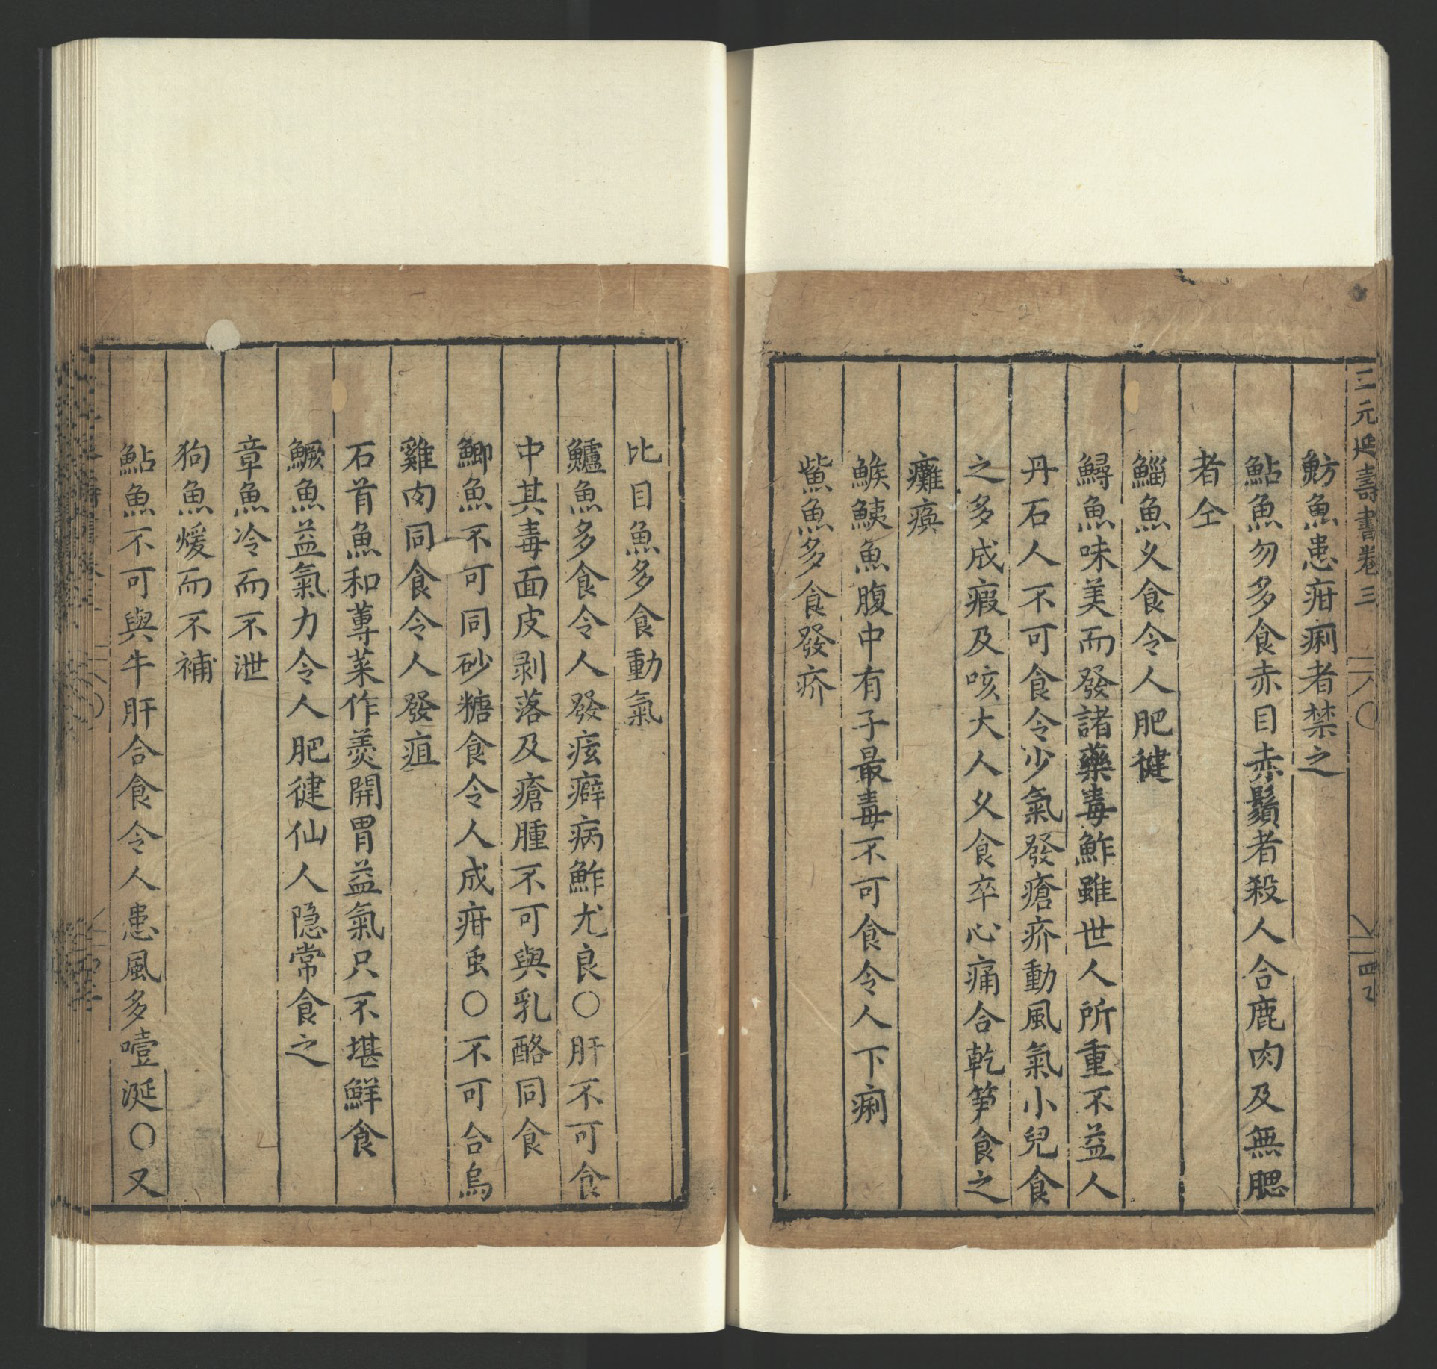 三元延壽書卷三
魴魚患疳痢者禁之
鮎魚勿多食赤目赤鬚者殺人合鹿肉及無腮
者仝
鯔魚久食令人肥健
鱘魚味美而發諸藥毒鮓雖世人所重不益人
丹石人不可食令少氣發瘡疥動風氣小兒食
之多成瘕及咳大人久食卒心痛合乾笋食之
癱瘓
鯸鮧魚腹中有子最毒不可食令人下痢
鮆魚多食發疥
比目魚多食動氣
鱸魚多食令人發痃癖病鮓尤良〇肝不可食
中其毒面皮剥落及瘡腫不可與乳酪同食
鯽魚不可同砂糖食令人成疳虫〇不可合烏
雞肉同食令人發疽
石首魚和蓴菜作羮開胃益氣只不堪鮮食
鱖魚益氣力令人肥健仙人隐常食之
章魚冷而不泄
狗魚煖而不補
鮎魚不可與牛肝合食令人患風多噎涎〇又